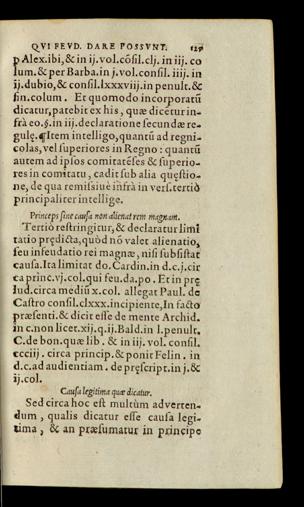 QVI FEVD. DARE POSSVNT. 129
p Alex. ibi, & in ij. vol. cōsil. clj. in iij. co
lum. & per Barba. in j. vol. consil. iiij. in
ij. dubio, & consil. lxxxviij. in penult. &
fin. colum. Et quomodo incorporatū
dicatur, patebit ex his, quæ dicētur in-
frà eo. §. in iij. declaratione secundæ re-
gulę. ¶Item intelligo, quantū ad regni-
colas, vel superiores in Regno: quantū
autem ad ipsos comitatēses & superio-
res in comitatu, cadit sub alia quęstio-
ne, de qua remissiuè infrà in vers. tertiò
principaliter intellige.
Princeps sine causa non alienat rem magnam.
Tertiò restringitur, & declaratur limi
tatio prędicta, quòd nō valet alienatio,
seu infeudatio rei magnæ, nisi subsistat
causa. Ita limitat do. Cardin. in d. c. j. cir
ca princ. vj. col. qui feu. da. po. Et in prę
lud. circa mediū x. col. allegat Paul. de
Castro consil. clxxx. incipiente, In facto
præsenti. & dicit esse de mente Archid.
in c. non licet. xij. q. ij. Bald. in l. penult.
C. de bon. quæ lib. & in iij. vol. consil.
cciij. circa princip. & ponit Felin. in
d. c. ad audientiam. de pręscript. in j. &
ij. col.
Causa legitima quæ dicatur.
Sed circa hoc est multùm advertẽn-
dum, qualis dicatur esse causa legi-
tima, & an præsumatur in principe